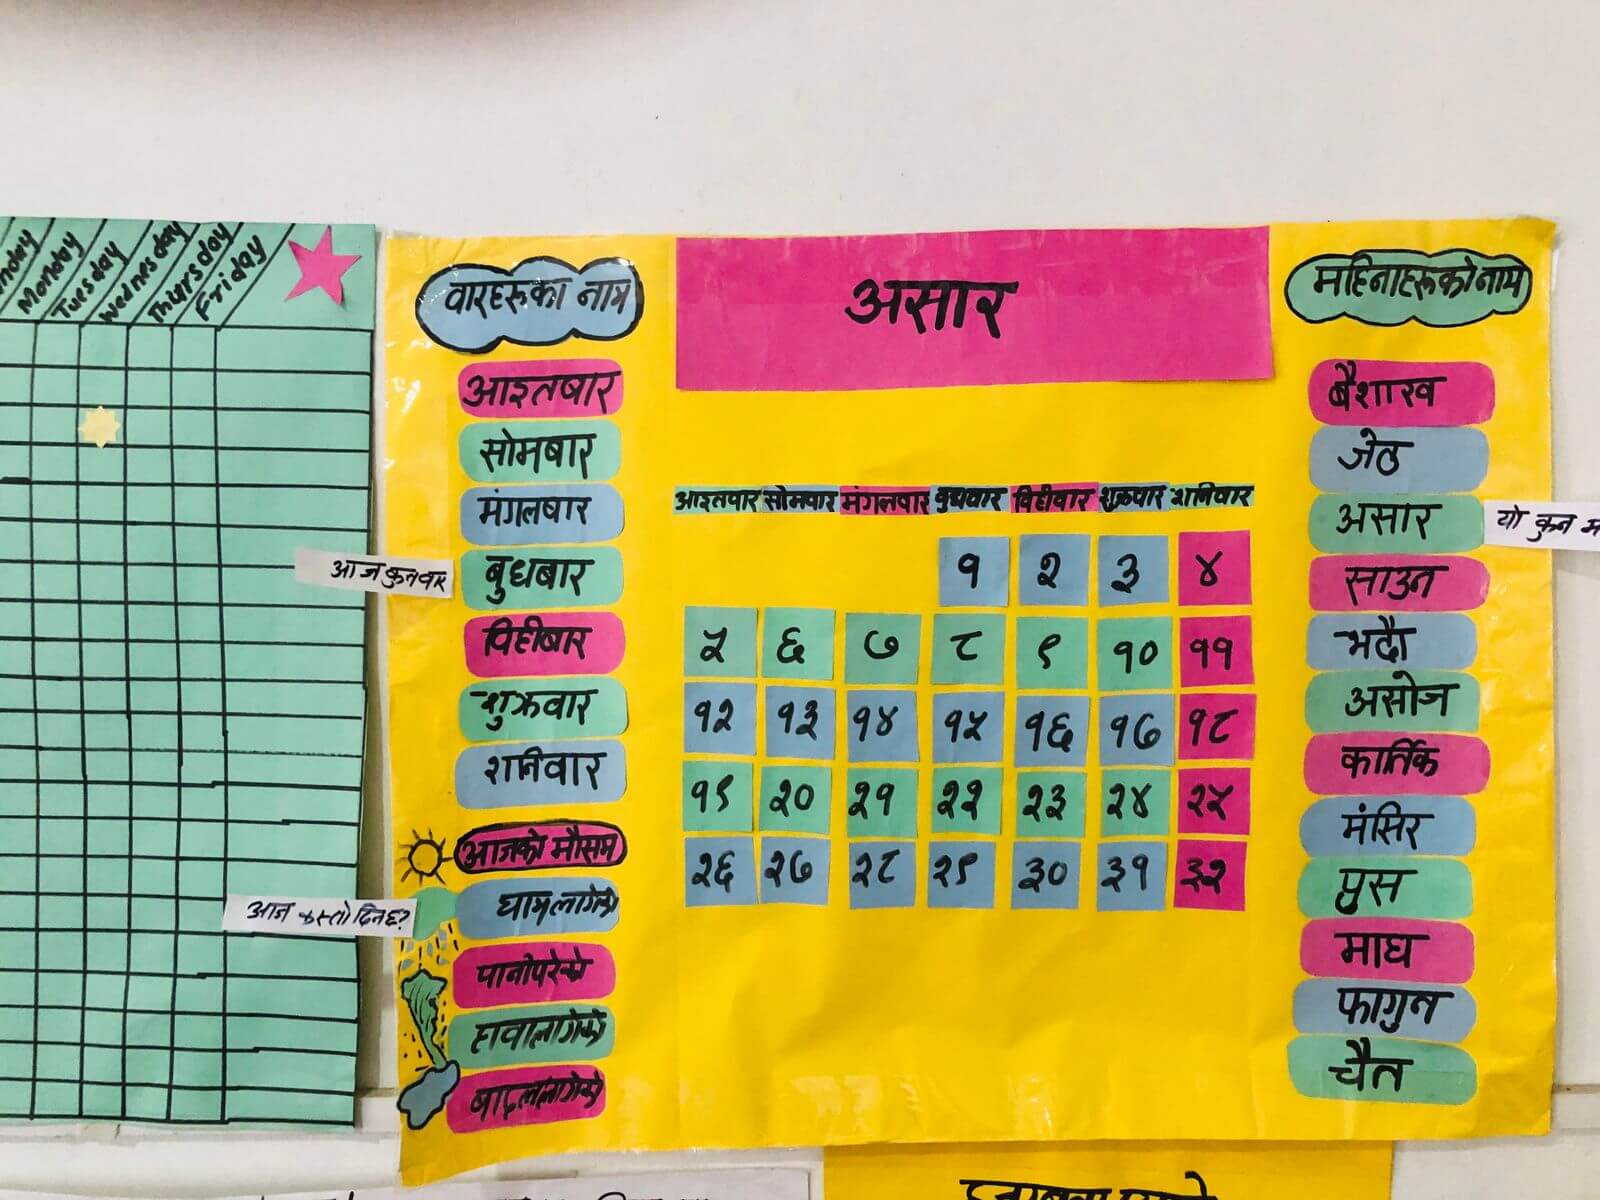 Monday
Tuesday
Wednesday
Thursday
Friday
वारहरुका नाम
आइतबार
सोमबार
मंगलबार
आज कुनवार
बुधबार
विहीबार
शुक्रवार
शनिवार
आजको मौसम
आज कस्तो दिन छ?
घामलागेको
पानीपरेको
हावालागेको
बादललागेको
असार
आइतवार सोमवार मंगलवार बुधवार विहीवार शुक्रवार शनिवार
१ २ ३ ४
५ ६ ७ ८ ९ १० ११
१२ १३ १४ १५ १६ १७ १८
१९ २० २१ २२ २३ २४ २५
२६ २७ २८ २९ ३० ३१ ३२
महिनाहरूको नाम
बैशाख
जेठ
असार
यो कुन
साउन
भदौ
असोज
कार्तिक
मंसिर
पुस
माघ
फागुन
चैत